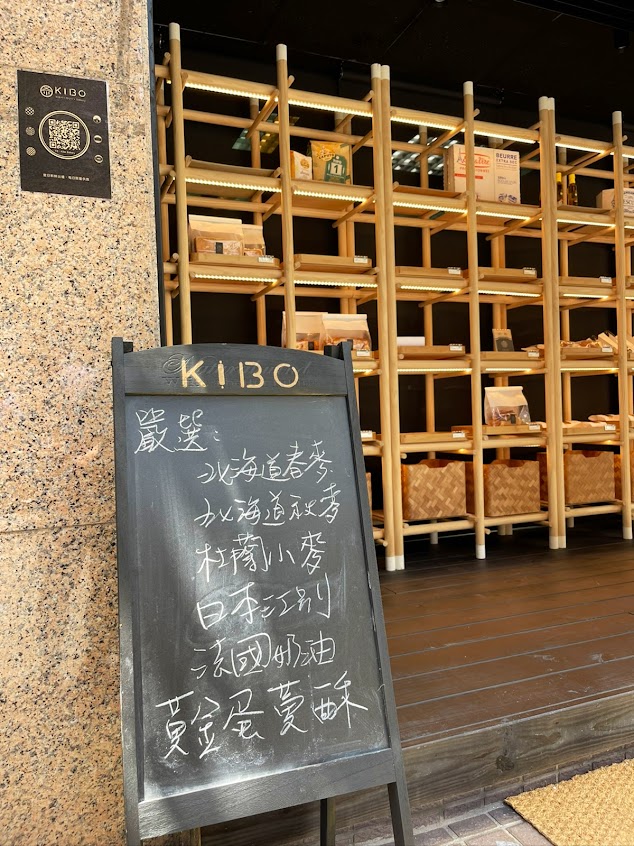 KIBO
KIBO
嚴選:
北海道春麥
北海道秋麥
杜蘭小麥
日本江別
法國奶油
黃金蛋蔓酥
BEURRE
1